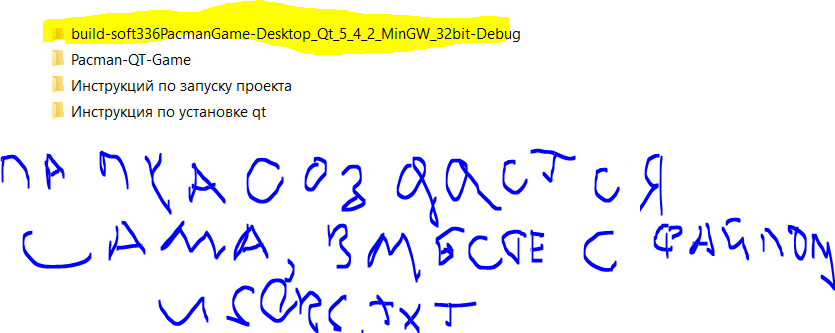 build-soft336PacmanGame-Desktop_Qt_5_4_2_MinGW_32bit-Debug
Pacman-QT-Game
Инструкций по запуску проекта
Инструкция по установке qt
ПАПКА СОЗДАСТСЯ
САМА, ВМЕСТЕ С ФАЙЛОМ
USERS.TXT